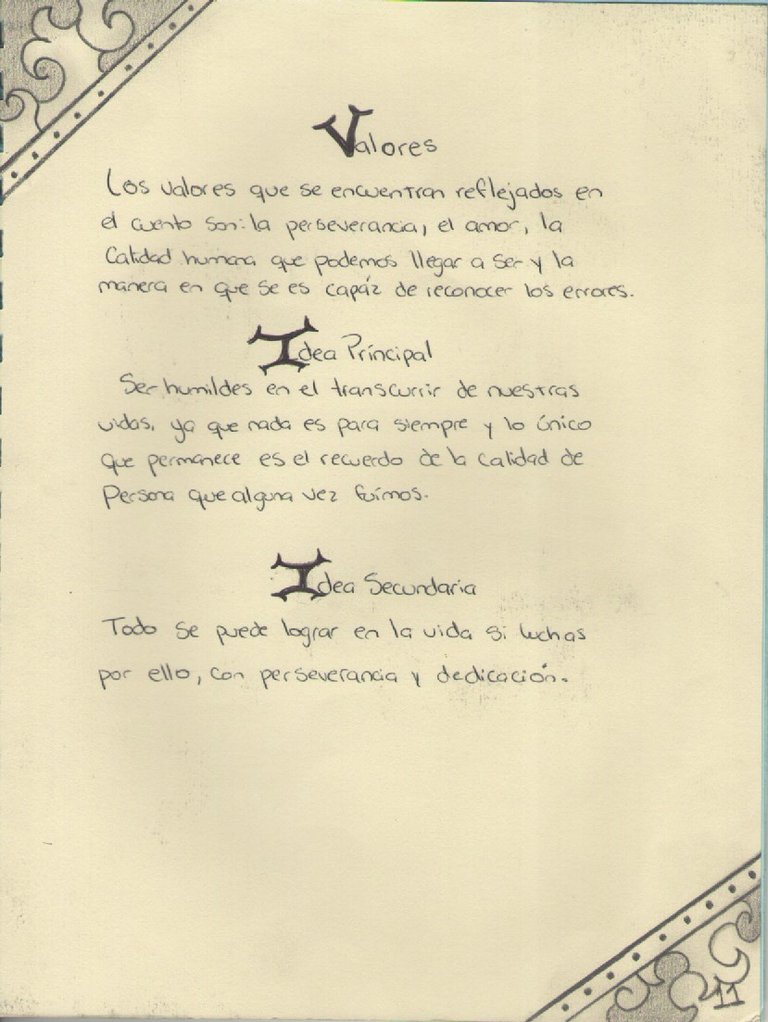 Valores
Los valores que se encuentran reflejados en
el cuento son: la perseverancia, el amor, la
Calidad humana que podemos llegar a ser y la
manera en que se es capáz de reconocer los errores.
Idea Príncipal
Ser humildes en el transcurrir de nuestras
vidas, ya que nada es para siempre y lo único
que permanece es el recuerdo de la calidad de
Persona que alguna vez fuímos.
Idea Secundaria
Todo se puede lograr en la vida si luchas
por ello, con perseverancia y dedicación.
11